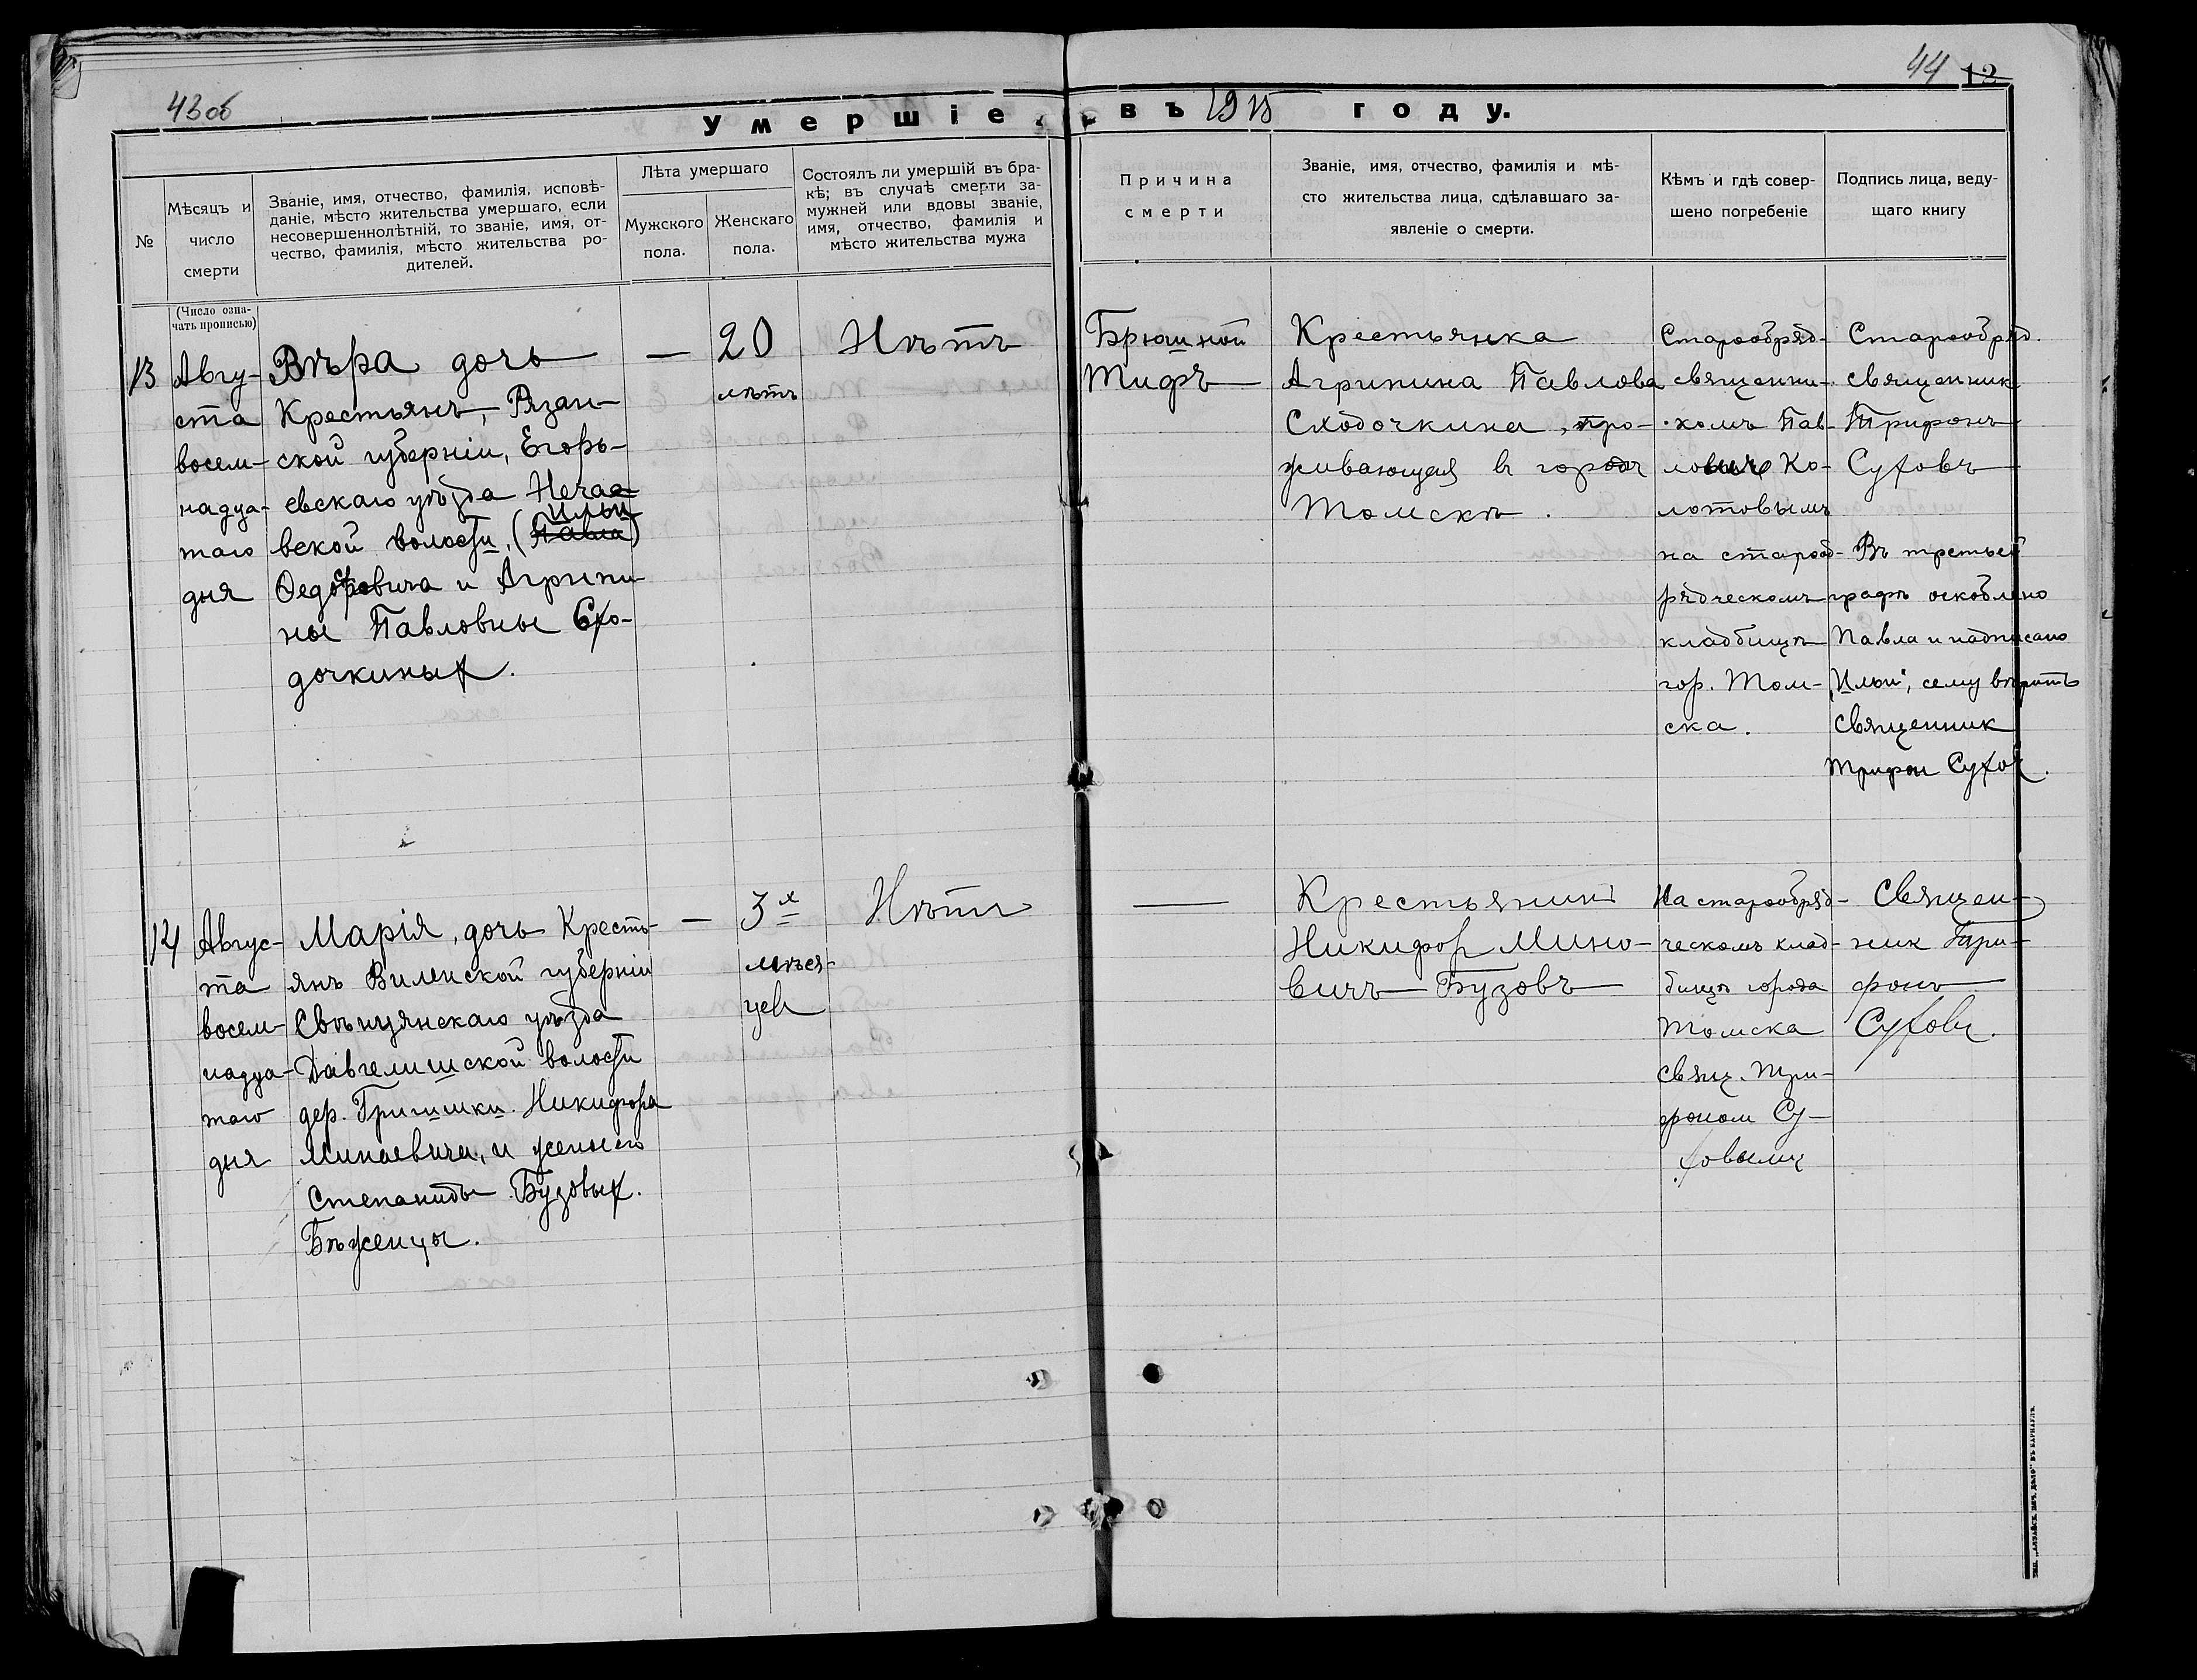 43об
44 12
Умершіе въ 1915 году.
№
Мѣсяцъ и
число
смерти
(Число озна-
чать прописью)
Званіе, имя, отчество, фамилія, исповѣ-
даніе, мѣсто жительства умершаго, если
несовершеннолѣтній, то званіе, имя, от-
чество, фамилія, мѣсто жительства ро-
дителей.
Лѣта умершаго
Мужского
пола.
Женскаго
пола.
Состоялъ ли умершій въ бра-
кѣ; въ случаѣ смерти за-
мужней или вдовы званіе,
имя, отчество, фамилія и
мѣсто жительства мужа
Причина
смерти
Званіе, имя, отчество, фамилія и мѣ-
сто жительства лица, сдѣлавшаго за-
явленіе о смерти.
Кѣмъ и гдѣ совер-
шено погребеніе
Подпись лица, веду-
щаго книгу
13
Авгу-
ста
восем-
надца-
таго
дня
Вѣра дочь
Крестьянъ, Рязан-
ской губерніи, Егорь-
евскаго уѣзда Нечаа-
Ильи
вской волости, (Павла)
Ѳедоровича и Агрипи-
ны Павловны Схо-
дочкиных.
—
20
лѣтъ
Нѣтъ
Брюшной
Тифъ
Крестьянка
Агрипина Павлова
Сходочкина, про-
живающая в городѣ
Томскѣ.
Старообряд-
священни-
комъ Пав-
Ко-
лотовымъ
на старооб-
рядческомъ
кладбищѣ
гор. Том-
ска.
Старообряд.
священник
Трифонъ
Суховъ
Въ третьей
графѣ оскоблено
Павла и надписано
„Ильи", сему вѣрить
священник
Трифон Сухов.
14
Авгус-
та
восем-
надца-
таго
дня
Марія, дочь Кресть-
янъ Виленской губерніи
Свѣнцянскаго уѣзда
Давгелишской волости
дер. Гришики. Никифора
Минаевича, и жены его
Степаниды Бузовых.
Бѣженцы.
—
3х
мѣся-
цев
Нѣтъ
—
Крестьянинъ
Никифор Мино-
вичъ Бузовъ
На старообряд-
ческомъ клад-
бищѣ города
Томска
свящ. Три-
фоном Су-
ховымъ
Священ-
ник Три-
фонъ
Суховъ.
ТИП. „АЛТАЙСК. ПЕЧ. ДѢЛО" ВЪ БАРНАУЛѢ.